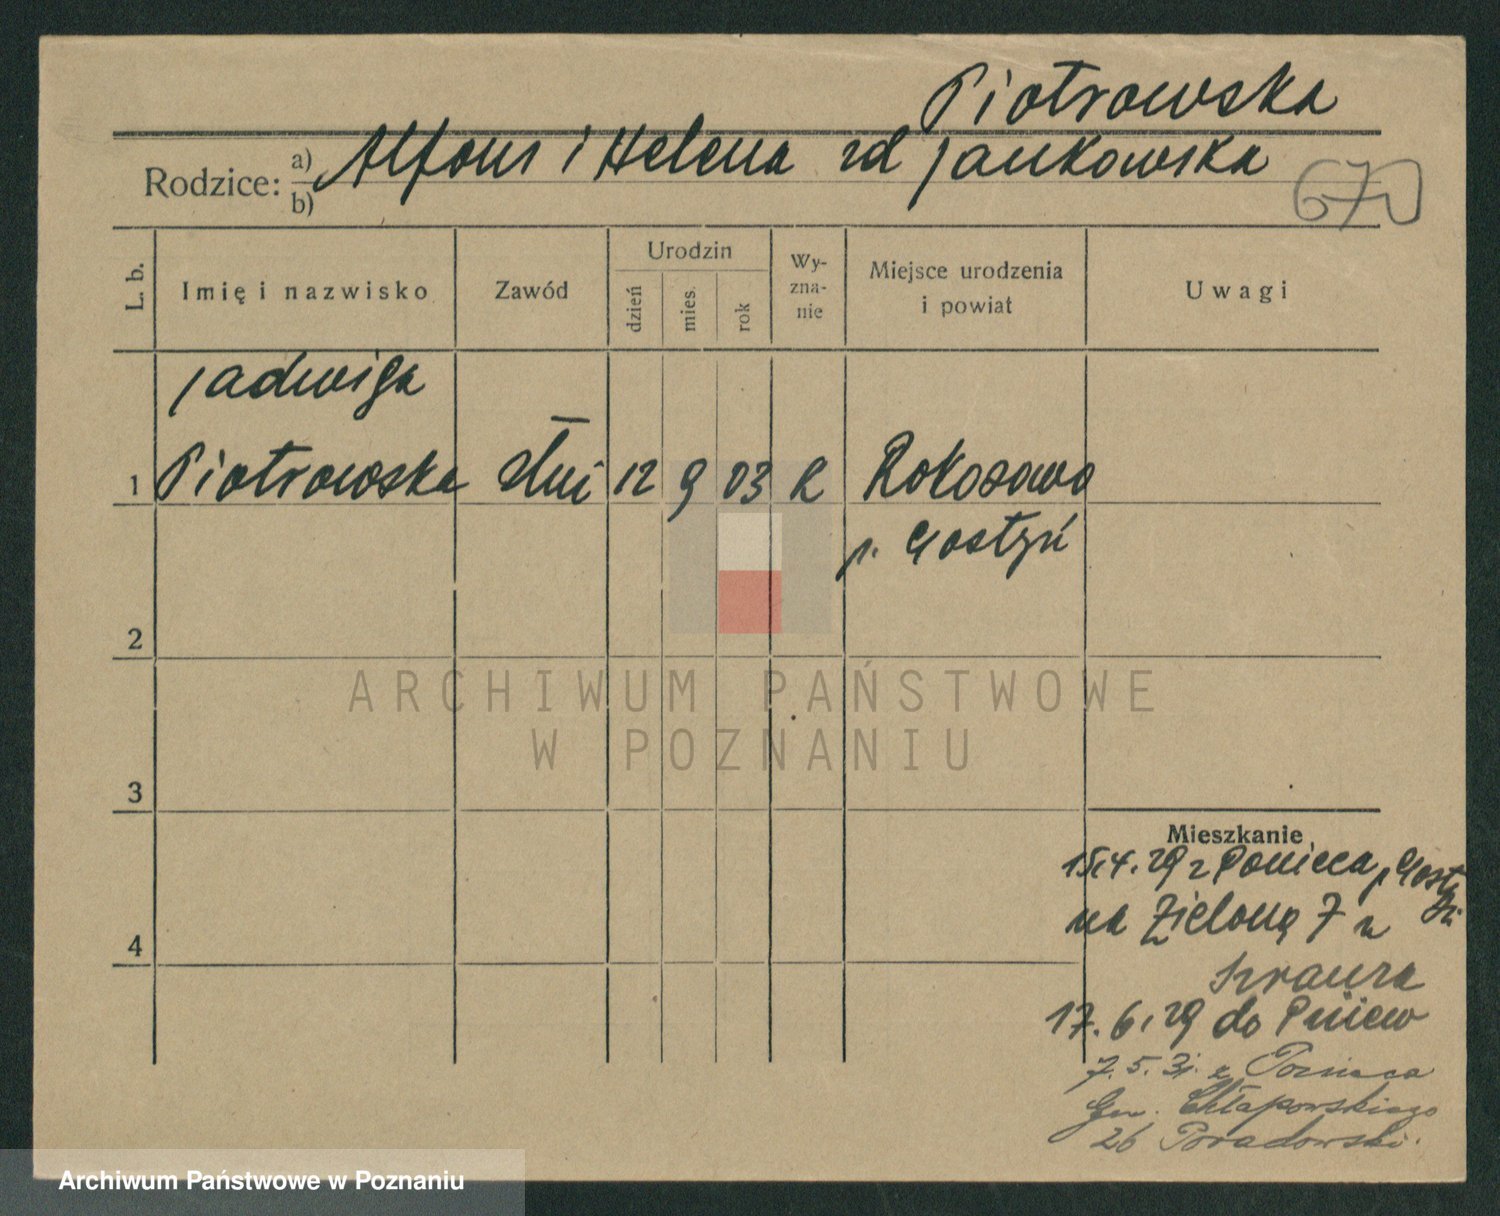 Piotrowska
Rodzice: a) Alfons i Helena zd Jankowska
b)
670
L. b.
Imię i nazwisko
Zawód
Urodzin
dzień
mies.
rok
Wy-
zna-
nie
Miejsce urodzenia
i powiat
Uwagi
Jadwiga
1 Piotrowska służ 12 9 03 R Rokosowo
p. Gostyń
2
3
4
Mieszkanie
15.4.29 z Ponieca p. Gostyń
na Zieloną 7 u
Krauza
17.6.29 do Pniew
7.5.31. z
Gen. Chłapowskiego
26 Poradowski.
ARCHIWUM PAŃSTWOWE
W POZNANIU
Archiwum Państwowe w Poznaniu